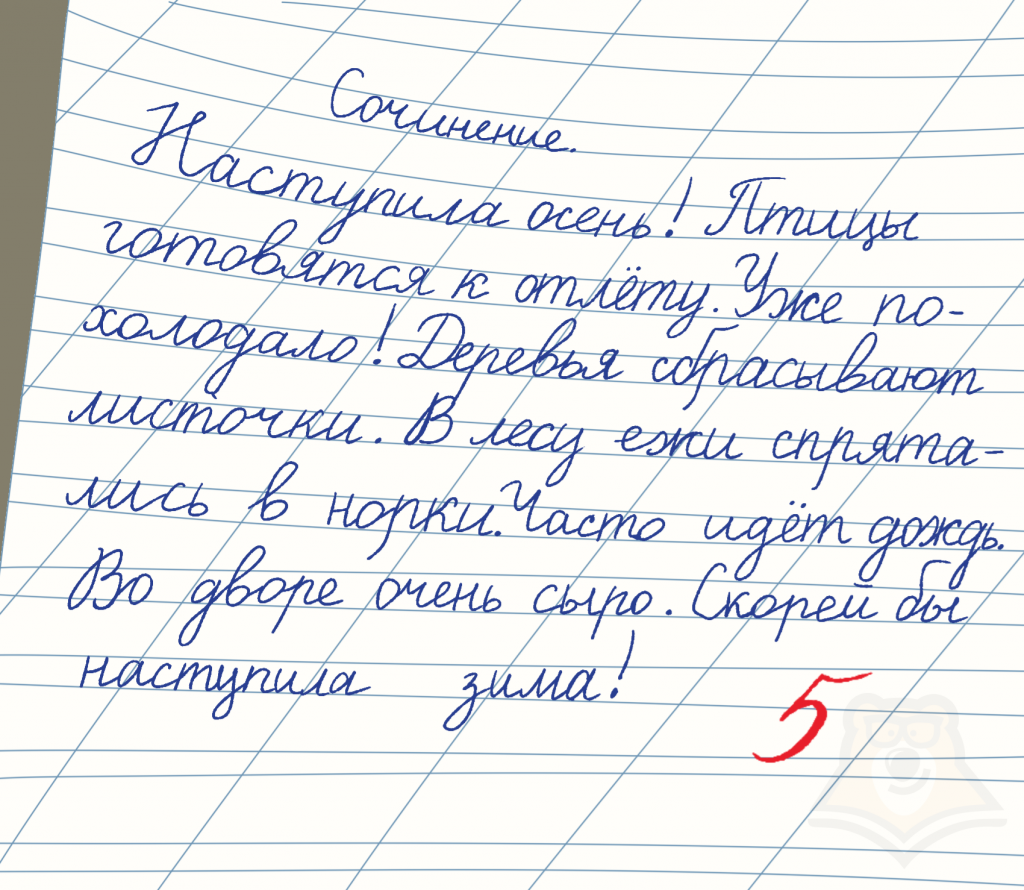 Сочинение.
Наступила осень! Птицы
готовятся к отлёту. Уже по-
холодало! Деревья сбрасывают
листочки. В лесу ежи спрята-
лись в норки. Часто идёт дождь.
Во дворе очень сыро. Скорей бы
наступила зима!
5